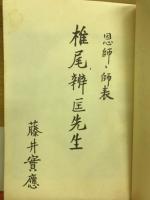 恩師・師表
椎尾辨匡先生
藤井實應